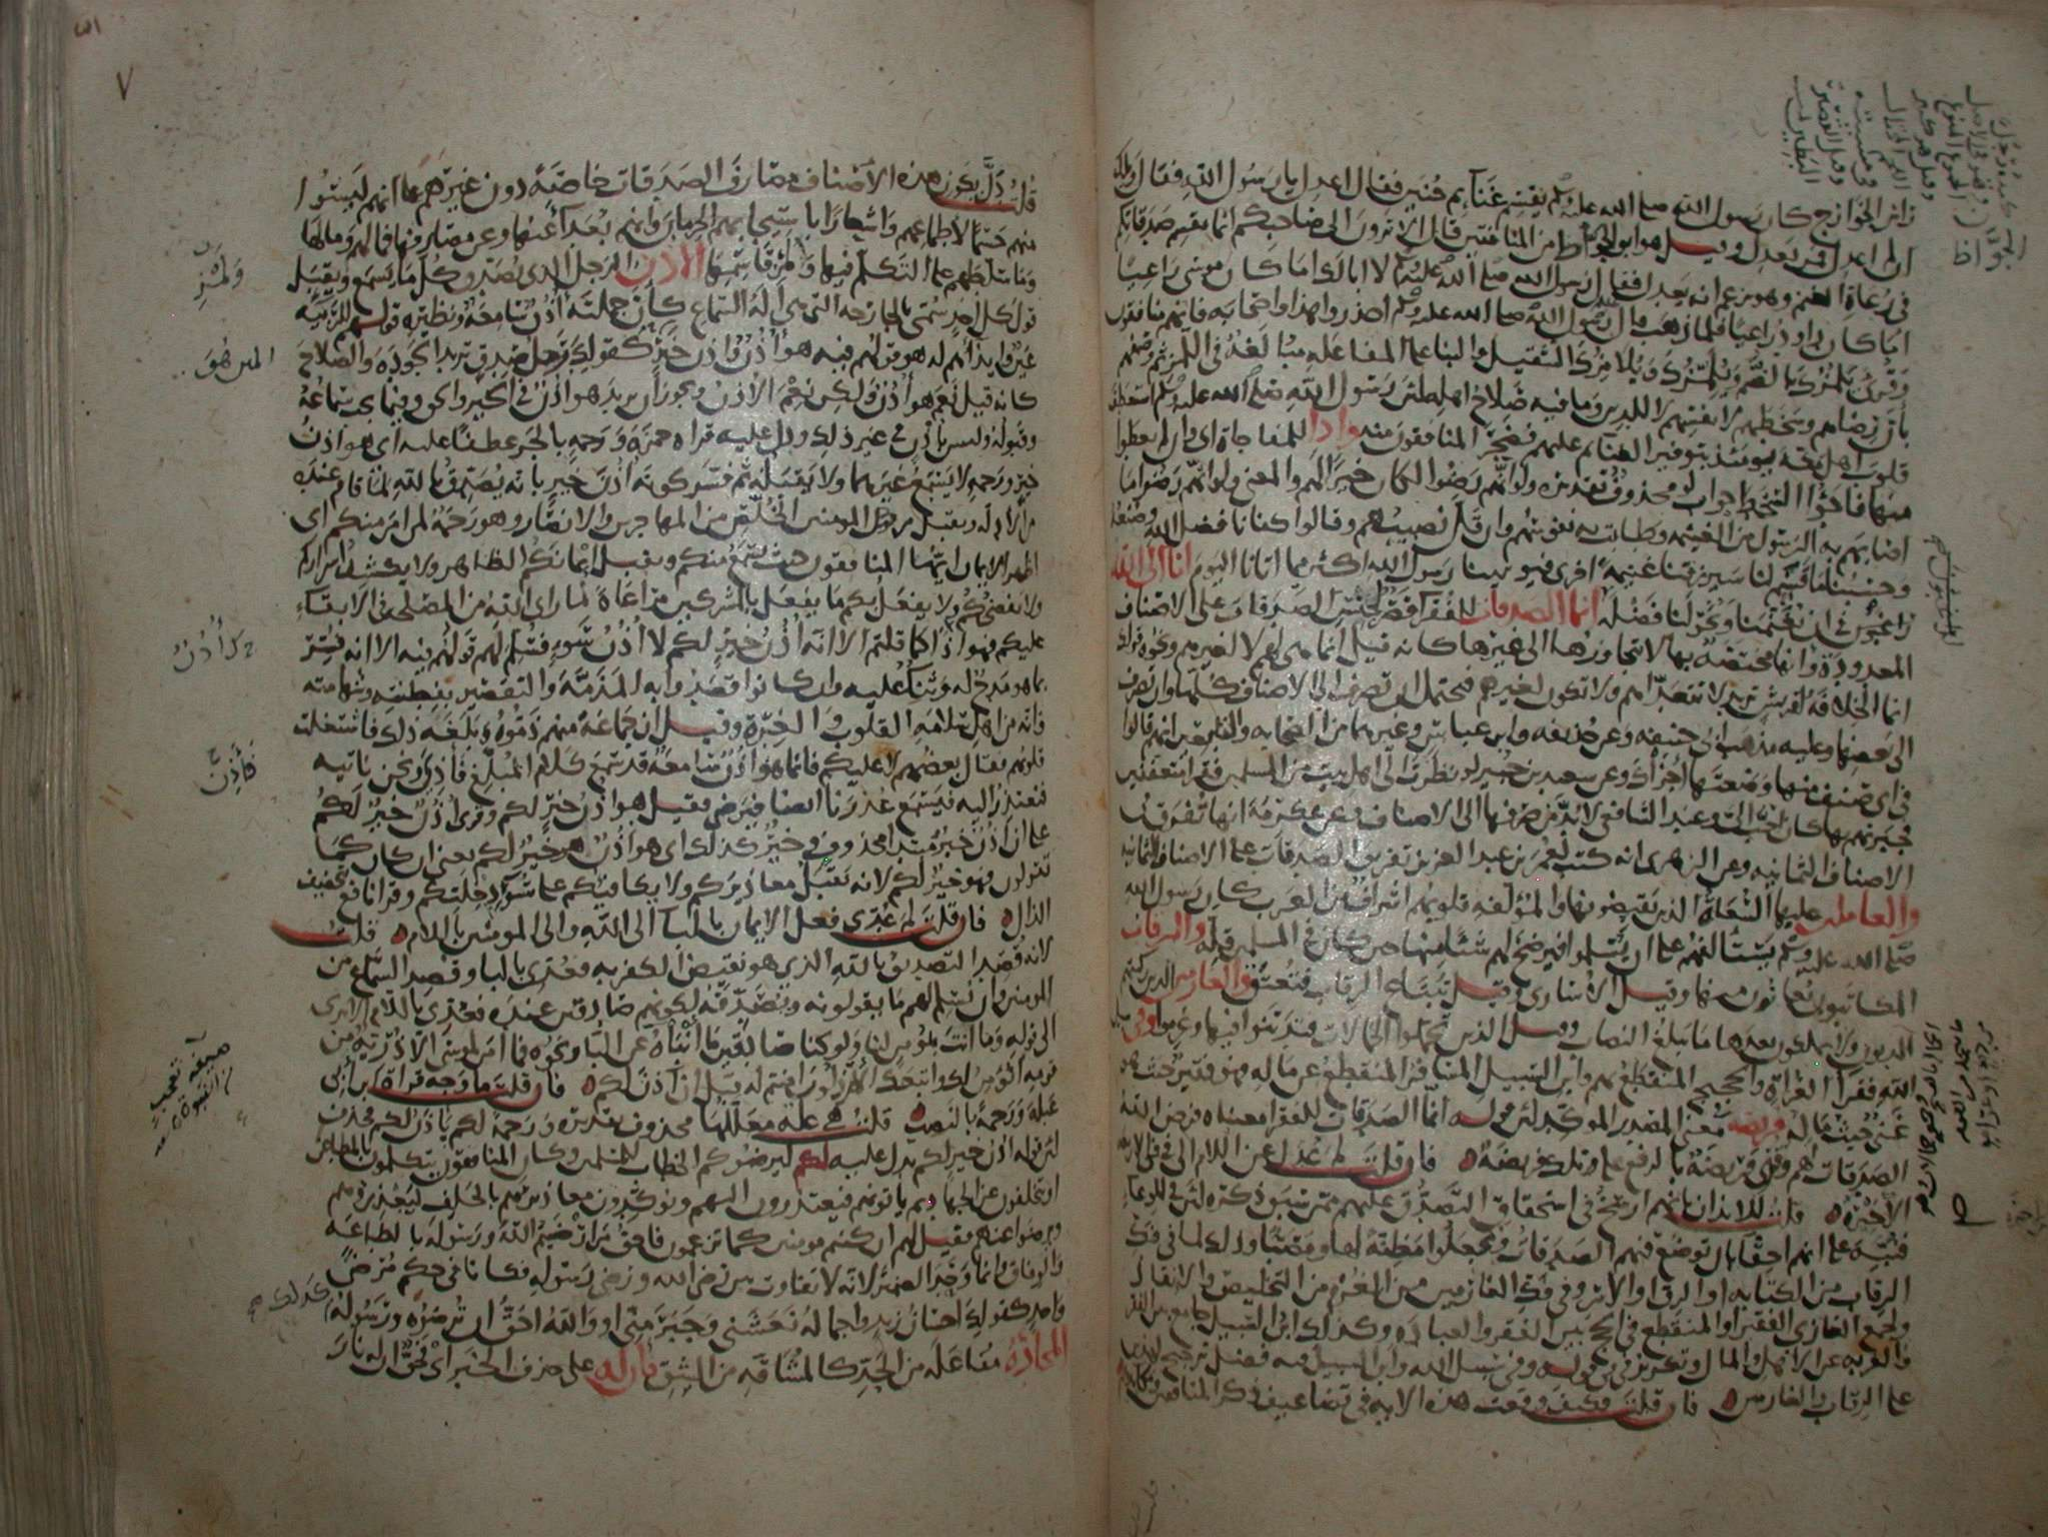 رأس الخوارج كان رسول الله صلى الله عليه وسلم يقسم غنائم حنين فقال اعدل يا رسول الله فقال ويلك
ان لم اعدل فمن يعدل وقيل هو ابو الجواظ من المنافقين قال الا ترون الى صاحبكم انما يقسم صدقاتكم
في رعاة الغنم وهو يزعم انه يعدل فقال رسول الله صلى الله عليه وسلم لا ابا لك اما كان موسى راعيا
اما كان داود راعيا فلما ذهب قال رسول الله صلى الله عليه وسلم احذروا هذا واصحابه فانهم منافقون
وقرئ يلمزك بالضم ويلمزك ويلامزك التثقيل والبنا على المفاعله مبالغة في اللمز ثم وصفهم
بان رضاهم وسخطهم لانفسهم لا للدين وما فيه صلاح اهله لان رسول الله صلى الله عليه وسلم استعطف
قلوب اهل مكة يومئذ بتوفير الغنائم عليهم فضجر المنافقون منه واذا للمفاجاة اي وان لم يعطوا
منها فاجؤا السخط جواب لو محذوف تقديره ولو انهم رضوا لكان خيرا لهم والمعنى ولو انهم رضوا ما
اصابهم به الرسول من الغنيمة وطابت به نفوسهم وان قل نصيبهم وقالوا كفانا فضل الله وصنعه
وحسبنا ما قسم لنا سيرزقنا غنيمة اخرى فيؤتينا رسول الله اكثر مما اتانا اليوم انا الى الله
راغبون في ان يغنمنا ويخولنا فضله انما الصدقات للفقرا قصر لجنس الصدقات على الاصناف
المعدودة وانها مختصة بها لا تتجاوزها الى غيرها كانه قيل انما هي لهم لا لغيرهم ونحوه قولك
انما الخلافة لقريش تريد لا تتعداهم ولا تكون لغيرهم فيحتمل ان تصرف الى الاصناف كلها وان تصرف
الى بعضها وعليه مذهب ابي حنيفه وعن حذيفه وابن عباس وغيرهما من الصحابه والتابعين انهم قالوا
في اي صنف منها وضعتها اجزاك وعن سعيد بن جبير لو نظرت الى اهل بيت من المسلمين فقرا متعففين
فجبرتهم بها كان احب الي وعند الشافعي لا بد من صرفها الى الاصناف وعن عكرمة انها تفرق في
الاصناف الثمانيه وعن الزهري انه كتب لعمر بن عبد العزيز تفريق الصدقات على الاصناف الثمانيه
والعاملين عليها السعاة الذين يقبضونها والمؤلفه قلوبهم اشراف من العرب كان رسول الله
صلى الله عليه وسلم يستالفهم على ان يسلموا فيرضخ لهم شئا منها حين كان في المسلمين قله والرقاب
المكاتبون يعانون منها وقيل الاسارى وقيل تبتاع الرقاب فتعتق والغارمين الذين ركبتهم
الديون ولا يملكون بعدها ما يبلغ النصاب وقيل الذين تحملوا الحمالات فتدينوا فيها وغرموا وفي سبيل
الله فقرا الغزاة والحجيج المنقطع بهم وابن السبيل المسافر المنقطع عن ماله فهو فقير حيث هو
غني حيث ماله فريضة معنى المصدر الموكد لان قوله انما الصدقات للفقرا معناه فرض الله
الصدقات لهم وقرئ فريضة بالرفع على تلك فريضة فان قلت لم عدل عن اللام الى في في الاربعة
الاخيرة قلت للايذان بانهم ارسخ في استحقاق التصدق عليهم ممن سبق ذكره لان في للوعاء
فنبه على انهم احقا بان توضع فيهم الصدقات ويجعلوا مظنة لها ومصبا وذلك لما في فك
الرقاب من الكتابه او الرق او الاسر وفي فك الغارمين من الغرم من التخليص والانقاذ
ولجمع الغازي الفقير او المنقطع في الحج بين الفقر والعبادة وكذلك ابن السبيل جامع بين الفقر
والغربه عن الاهل والمال وتكرير في في قوله وفي سبيل الله وابن السبيل فيه فضل ترجيح لهذين
على الرقاب والغارمين فان قلت فكيف وقعت هذه الايه في تضاعيف ذكر المنافقين
الجواظ
٧
قلت دل بكون هذه الاصناف مصارف الصدقات خاصة دون غيرهم على انهم ليسوا
منهم حسما لاطماعهم واشعارا باستيجابهم الحرمان وانهم بعدا عنها وعن مصارفها فما لهم وما لها
وما سلطهم على التكلم فيها ولمز قاسمها الاذن الرجل الذي يصدق كل ما يسمع ويقبل
قول كل احد سمي بالجارحه التي هي الة السماع كان جملته اذن سامعة ونظيره قولهم للربيئة
عين وايذاوهم له هو قولهم فيه هو اذن واذن خير كقولك رجل صدق تريد الجودة والصلاح
كانه قيل نعم هو اذن ولكن نعم الاذن ويجوز ان يريد هو اذن في الخير والحق وفيما يجب سماعه
وقبوله وليس باذن في غير ذلك ودل عليه قراة حمزة ورحمة بالجر عطفا عليه اي هو اذن
خير ورحمة لا يسمع غيرهما ولا يقبله ثم فسر كونه اذن خير بانه يصدق بالله لما قام عنده
من الادلة ويقبل من المومنين الخلص من المهاجرين والانصار وهو رحمة لمن امن منكم اي
اظهر الايمان ايها المنافقون حيث يسمع منكم ويقبل ايمانكم الظاهر ولا يكشف اسراركم
ولا يفضحكم ولا يفعل بكم ما يفعل بالمشركين مراعاة لما راى الله من المصلحة في الابقاء
عليكم فهو اذن كما قلتم الا انه اذن خير لكم لا اذن سوء فسلم لهم قولهم فيه الا انه فسر
بما هو مدح له وثناء عليه وان كانوا قصدوا به المذمة والتقصير بفطنته وشهامته
وانه من اهل سلامة القلوب والغرة وقيل ان جماعة منهم ذموه وبلغه ذلك فاشتغلت
قلوبهم فقال بعضهم لا عليكم فانما هو اذن سامعة قد سمع كلام المبلغ فاذن ونحن ناتيه
فنعتذر اليه فيسمع عذرنا ايضا فيرضى فقيل هو اذن خير لكم وقرئ اذن خير لكم
على ان اذن خبر مبتدا محذوف وخير كذلك اي هو اذن هو خير لكم يعني ان كان كما
تقولون فهو خير لكم لانه يقبل معاذيركم ولا يكافيكم على سوء دخلتكم وقرا نافع بتخفيف
الذال فان قلت لم عدي فعل الايمان بالبا الى الله والى المومنين باللام قلت
لانه قصد التصديق بالله الذي هو نقيض الكفر به فعدى بالبا وقصد السماع من
المومنين وان يسلم لهم ما يقولونه ويصدقه لكونهم صادقين عنده فعدى باللام الا ترى
الى قوله وما انت بمؤمن لنا ولو كنا صادقين ما انباه عن البا ونحوه فما امن لموسى الا ذرية من
قومه انؤمن لك واتبعك الارذلون امنتم له قبل ان آذن لكم فان قلت ما وجه قراة ابن ابي
عبلة ورحمة بالنصب قلت هي علة معللها محذوف تقديره ورحمة لكم ياذن لكم فحذف
لان قوله اذن خير لكم يدل عليه لكم ليرضوكم الخطاب للمسلمين وكان المنافقون يتكلمون بالمطاعن
او يتخلفون عن الجهاد ثم ياتونهم فيعتذرون اليهم ويؤكدون معاذيرهم بالحلف ليعذروهم
ويرضوا عنهم فقيل لهم ان كنتم مومنين كما تزعمون فاحق من ارضيتم الله ورسوله بالطاعة
والوفاق وانما وحد الضمير لانه لا تفاوت بين رضى الله ورضى رسوله فكانا في حكم مرضي
واحد كقولك احسان زيد واجماله نعشني وجبر مني او والله احق ان يرضوه ورسوله
المحادة مفاعلة من الحد كالمشاقة من الشق فان له على حذف الخبر اي فحق ان له نار
ولمز
كذلك